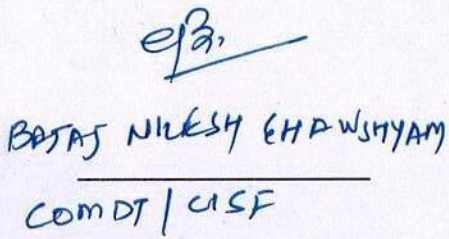 BAJAJ NILESH GHANSHYAM
COMDT / CISF